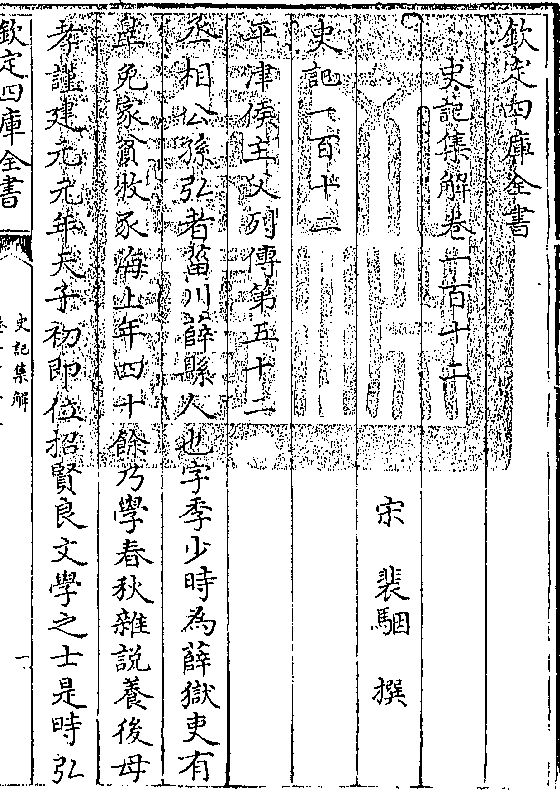 欽定四庫全書
史記集解卷一百十二
宋 裴駰 撰
史記一百十二
平津侯主父列傳第五十二
丞相公孫弘者菑川薛縣人也字季少時為薛獄吏有
辠免家貧牧豕海上年四十餘乃學春秋雜說養後母
孝謹建元元年天子初即位招賢良文學之士是時弘
欽定四庫全書
史記集解
一